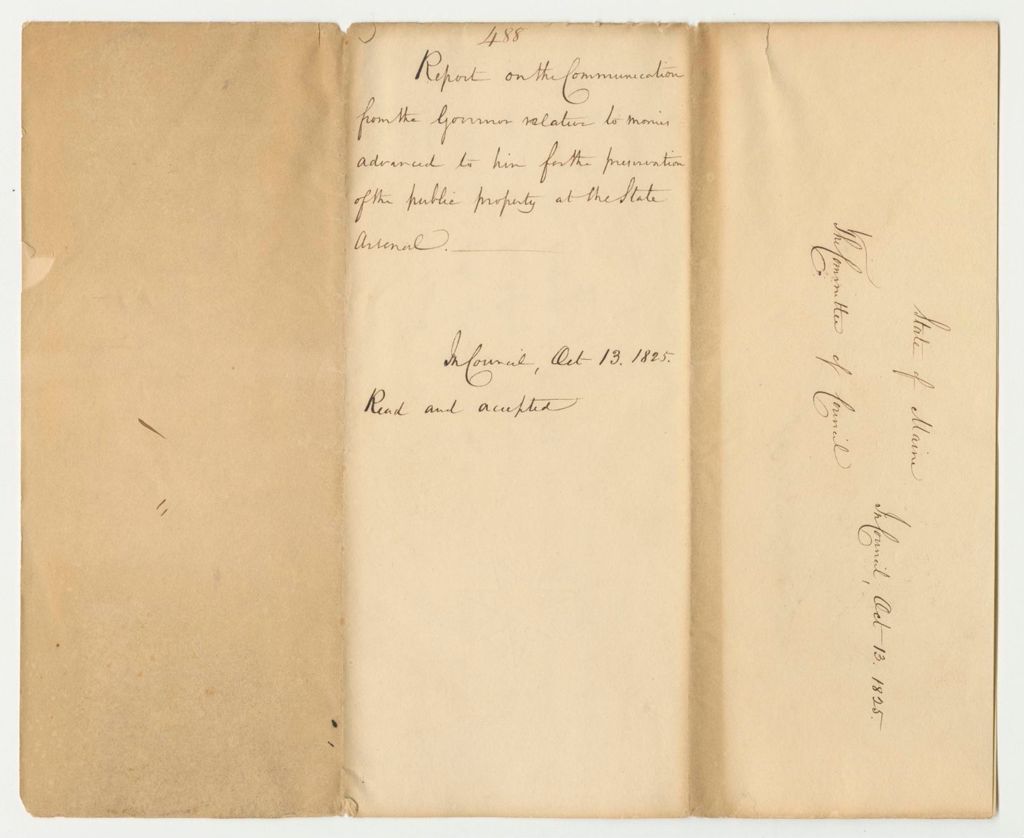 488
Report on the Communication
from the Governor relative to monies
advanced to him for the preservation
of the public property at the State
Arsenal.
In Council, Oct 13. 1825.
Read and accepted
State of Maine
In Council, Oct 13. 1825.
The Committee of Council